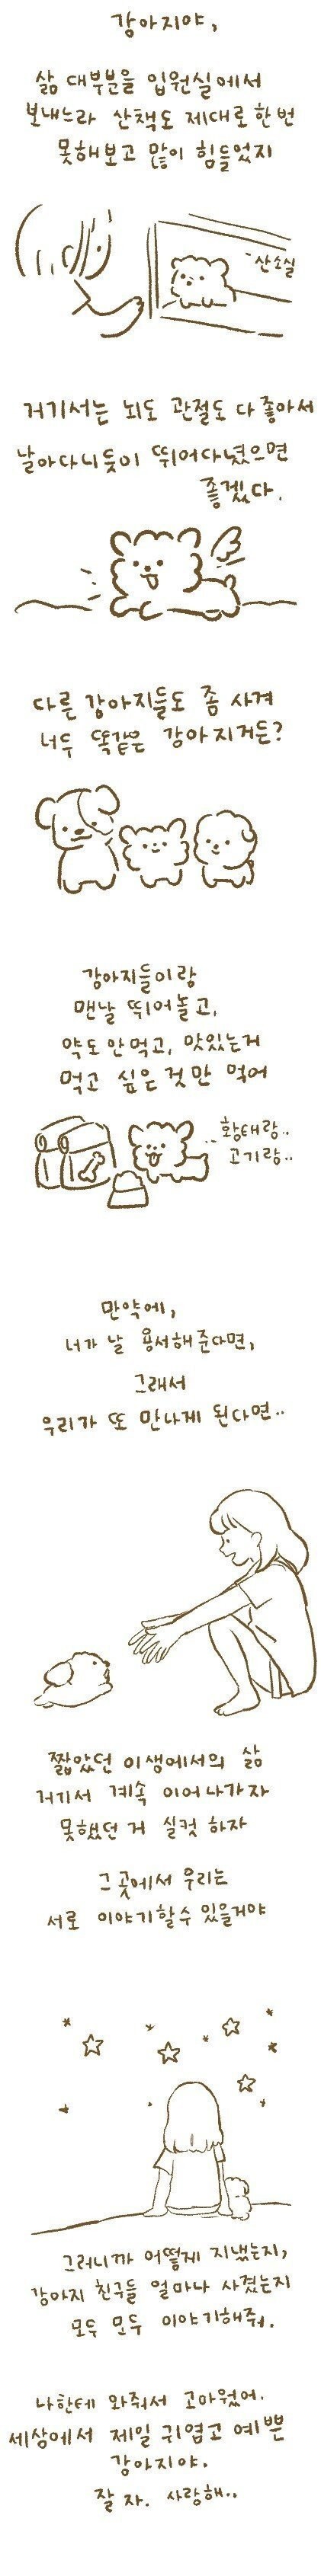 강아지야,
삶 대부분을 입원실에서
보내느라 산책도 제대로 한번
못해보고 많이 힘들었지
산소실
거기서는 뇌도 관절도 다 좋아서
날아다니듯이 뛰어다녔으면
좋겠다.
다른 강아지들도 좀 사겨
너두 똑같은 강아지거든?
강아지들이랑
맨날 뛰어놀고,
약도 안먹고, 맛있는거
먹고 싶은 것만 먹어
황태랑..
고기랑..
만약에,
너가 날 용서해준다면,
그래서
우리가 또 만나게 된다면..
짧았던 이생에서의 삶
거기서 계속 이어나가자
못했던 거 실컷 하자
그 곳에서 우리는
서로 이야기할수 있을거야
그러니까 어떻게 지냈는지,
강아지 친구들 얼마나 사겼는지
모두 모두 이야기해줘.
나한테 와줘서 고마웠어.
세상에서 제일 귀엽고 예쁜
강아지야.
잘 자. 사랑해..